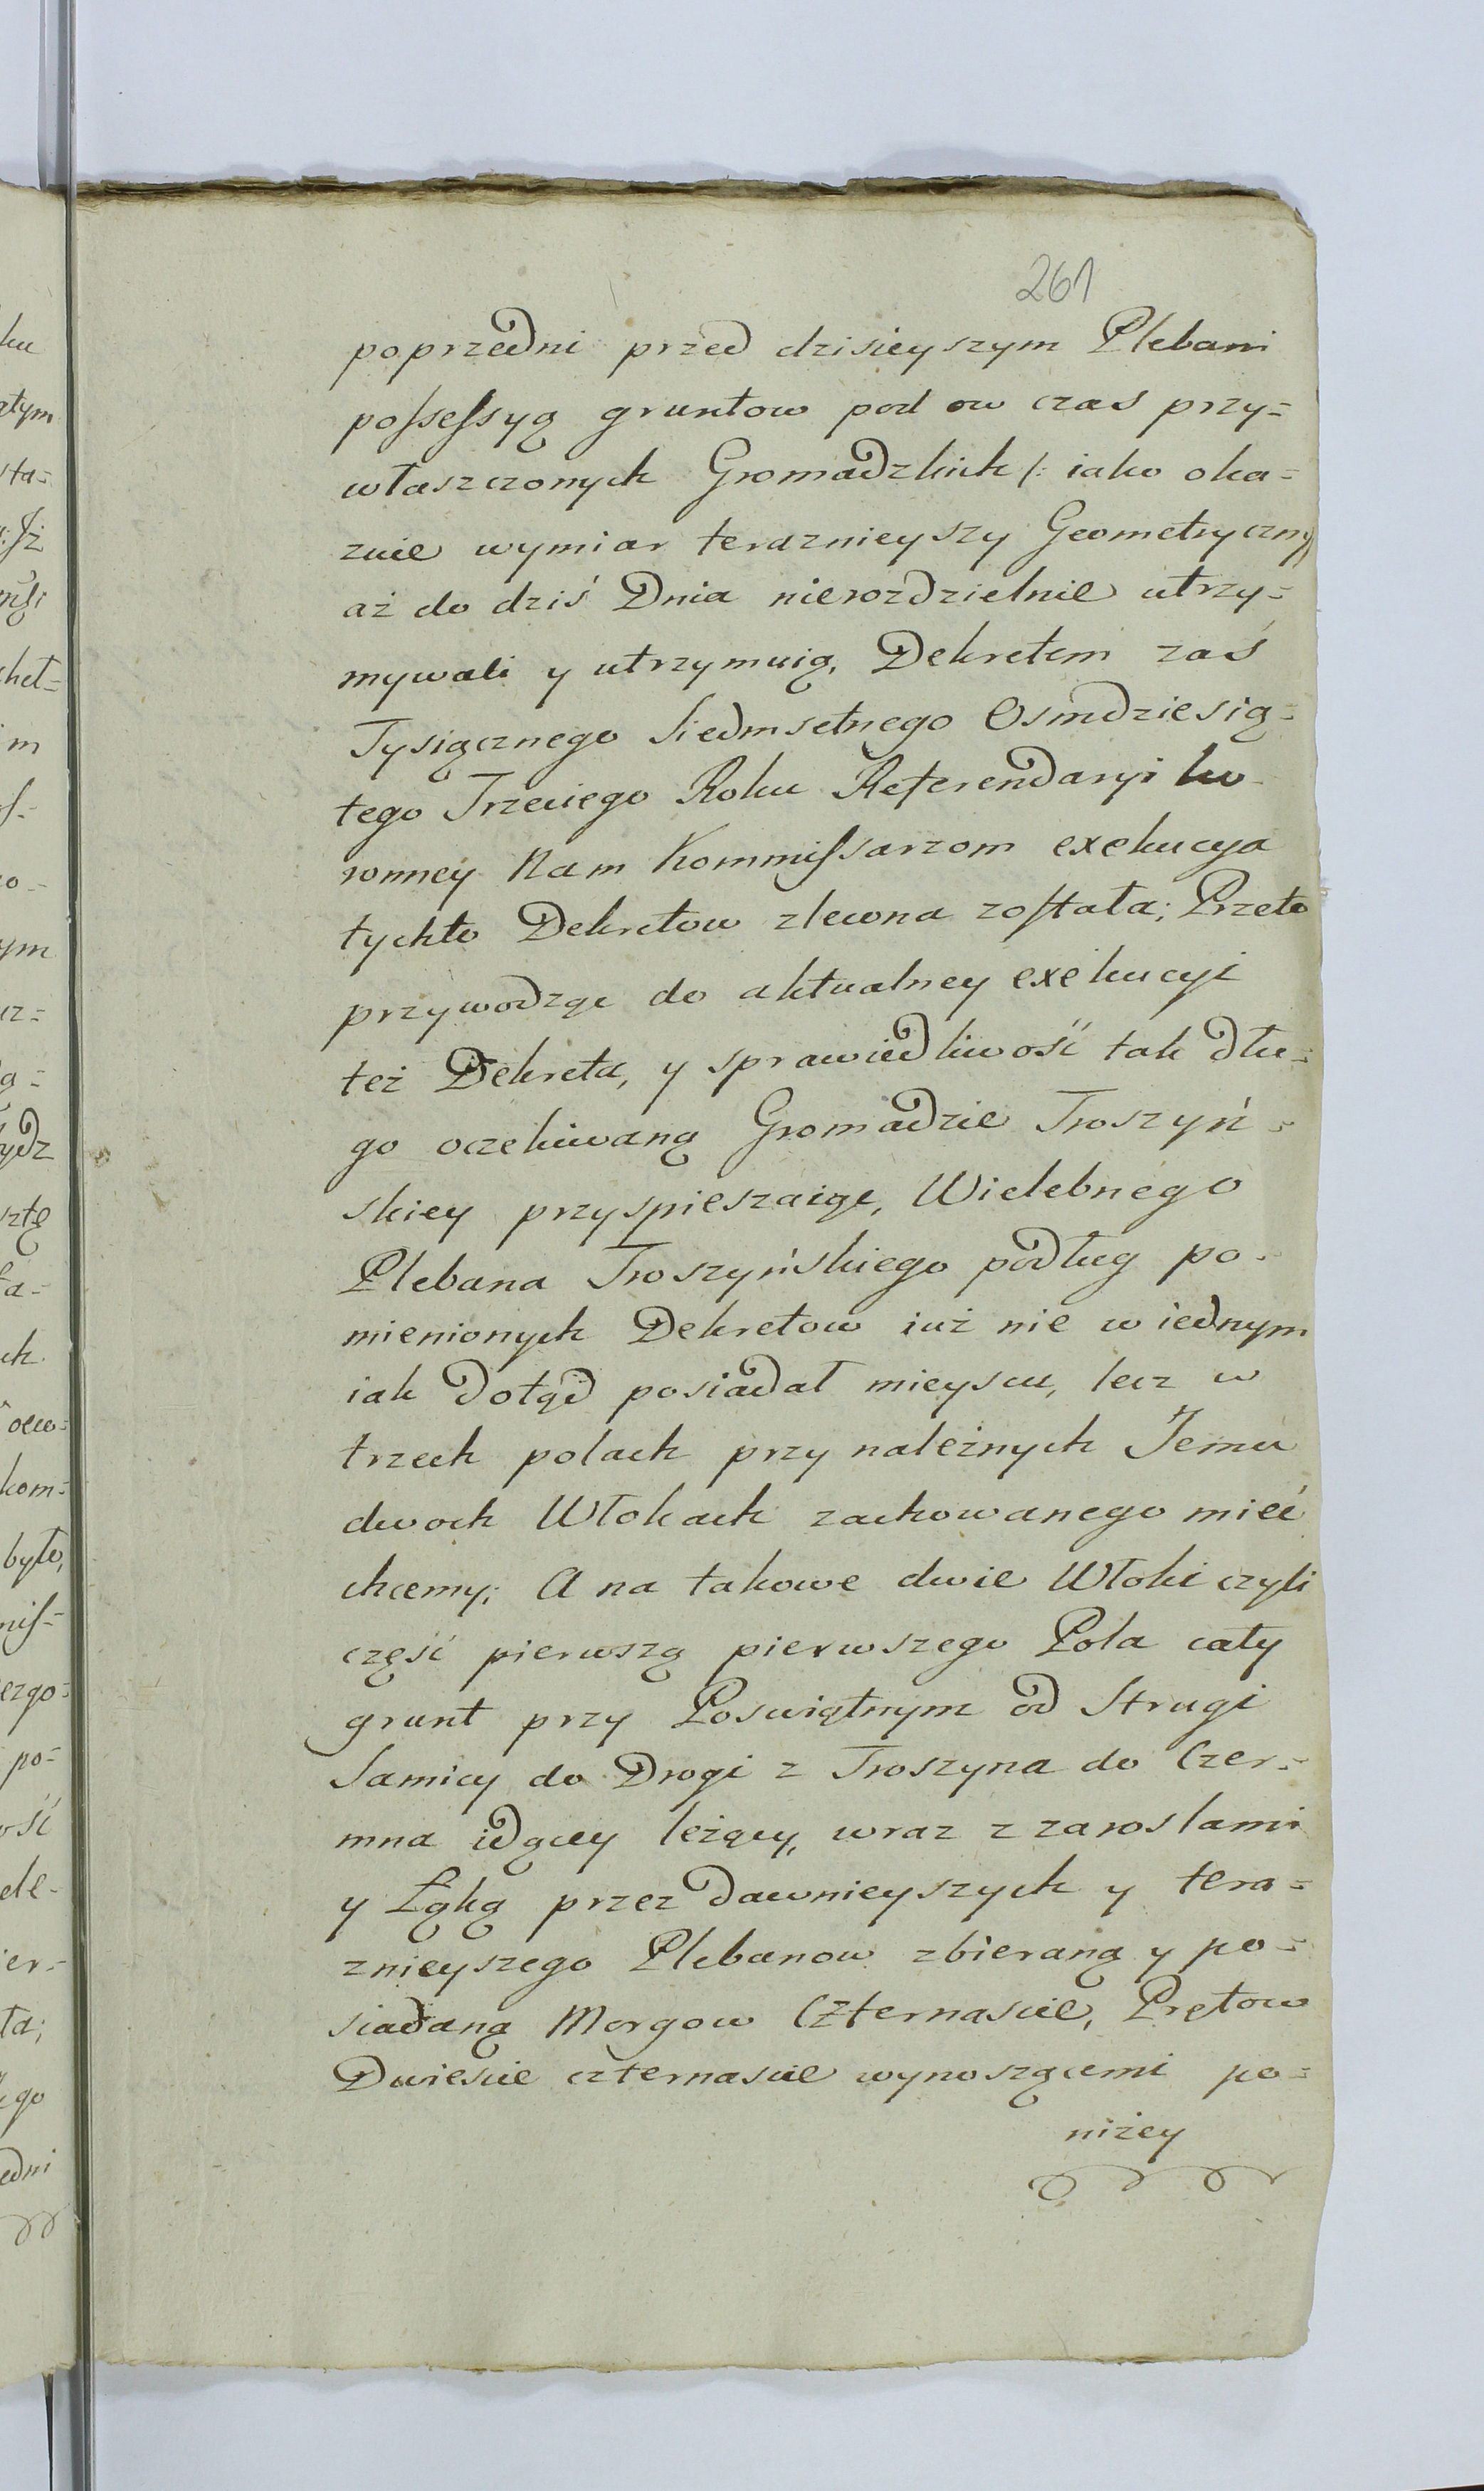 261
poprzedni przed dzisieyszym Plebani
poſseſsyą gruntow pod ow czas przy=
właszczonych Gromadzkich /: iako oka=
zuie wymiar teraznieyszy Geometryczny
aż do dziś Dnia nierozdzielnie utrzy=
mywali y utrzymuią, Dekretem zaś
Tysiącznego Siedmsetnego Osmdziesią=
tego Trzeciego Roku Referendaryi ko-
ronney Nam Kommiſsarzom exekucya
tychto Dekretow zlecona zoſtała; Przeto
przywodząc do aktualney exekucyi
też Dekreta, y sprawiedliwość tak dłu=
go oczekiwaną Gromadzie Troszyń=
skiey przyspieszaiąc, Wielebnego
Plebana Troszyńskiego podług po=
mienionych Dekretow iuż nie w iednym
iak dotąd posiadał mieyscu, lecz w
trzech polach przy należnych Jemu
dwoch Włokach zachowanego mieć
chcemy; A na takowe dwie Włoki czyli
część pierwszą pierwszego Pola cały
grunt przy Poswiętnym od Strugi
Samicy do Drogi z Troszyna do Czer=
mna idącey leżący, wraz z zaroslami
y Łąką przez dawnieyszych y tera=
znieyszego Plebanow zbieraną y po=
siadaną Morgow Czternascie, Prętow
Dwiescie czternascie wynoszącemi po=
niżey
ku
atym
sta=
chet=
im
ym
ydz
sztę
ch
kom=
było,
niſ=
ezgo=
po=
ość
ele-
ier-
ta;
edni